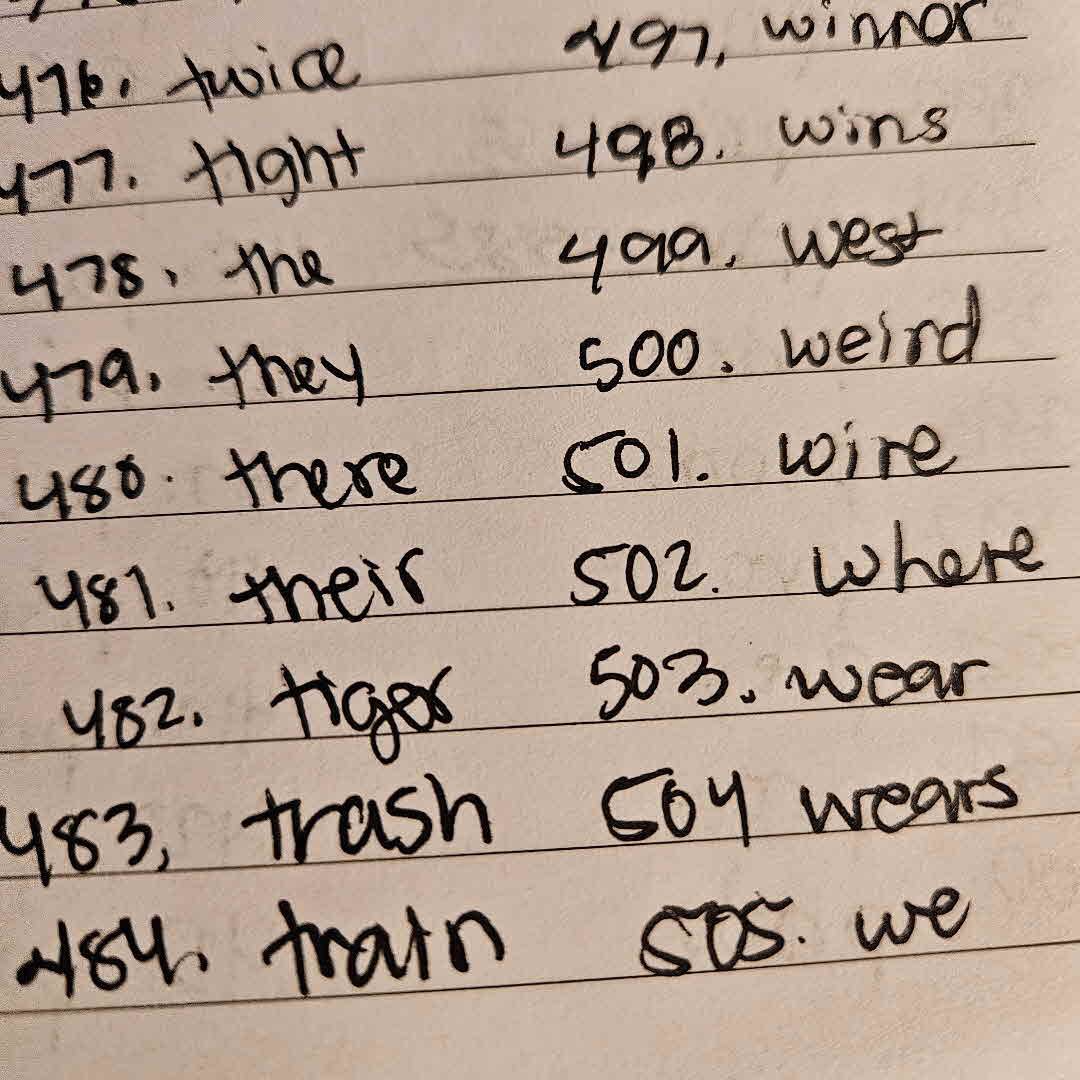 476. twice
477. tight
478. the
479. they
480. there
481. their
482. tiger
483, trash
484. train
497, winnor
498. wins
499. west
500. weird
501. wire
502. where
503. wear
504 wears
505. we